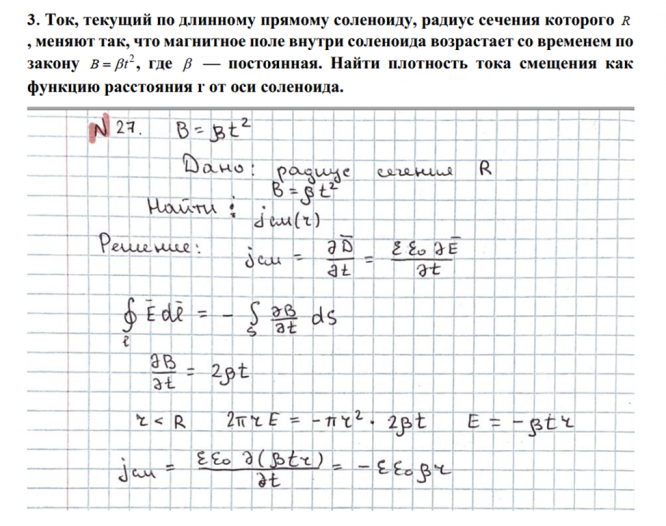 3. Ток, текущий по длинному прямому соленоиду, радиус сечения которого R
, меняют так, что магнитное поле внутри соленоида возрастает со временем по
закону B = βt², где β — постоянная. Найти плотность тока смещения как
функцию расстояния r от оси соленоида.
N 27. B = βt²
Дано: радиус сечения R
B = βt²
Найти: jсм(r)
Решение: jсм = ∂D̄/∂t = εε₀∂Ē/∂t
∮ₗ Ēdl̄ = - ∫ₛ ∂B/∂t dS
∂B/∂t = 2βt
r < R 2πrE = -πr² · 2βt E = -βtr
jсм = εε₀ ∂(βtr)/∂t = -εε₀βr